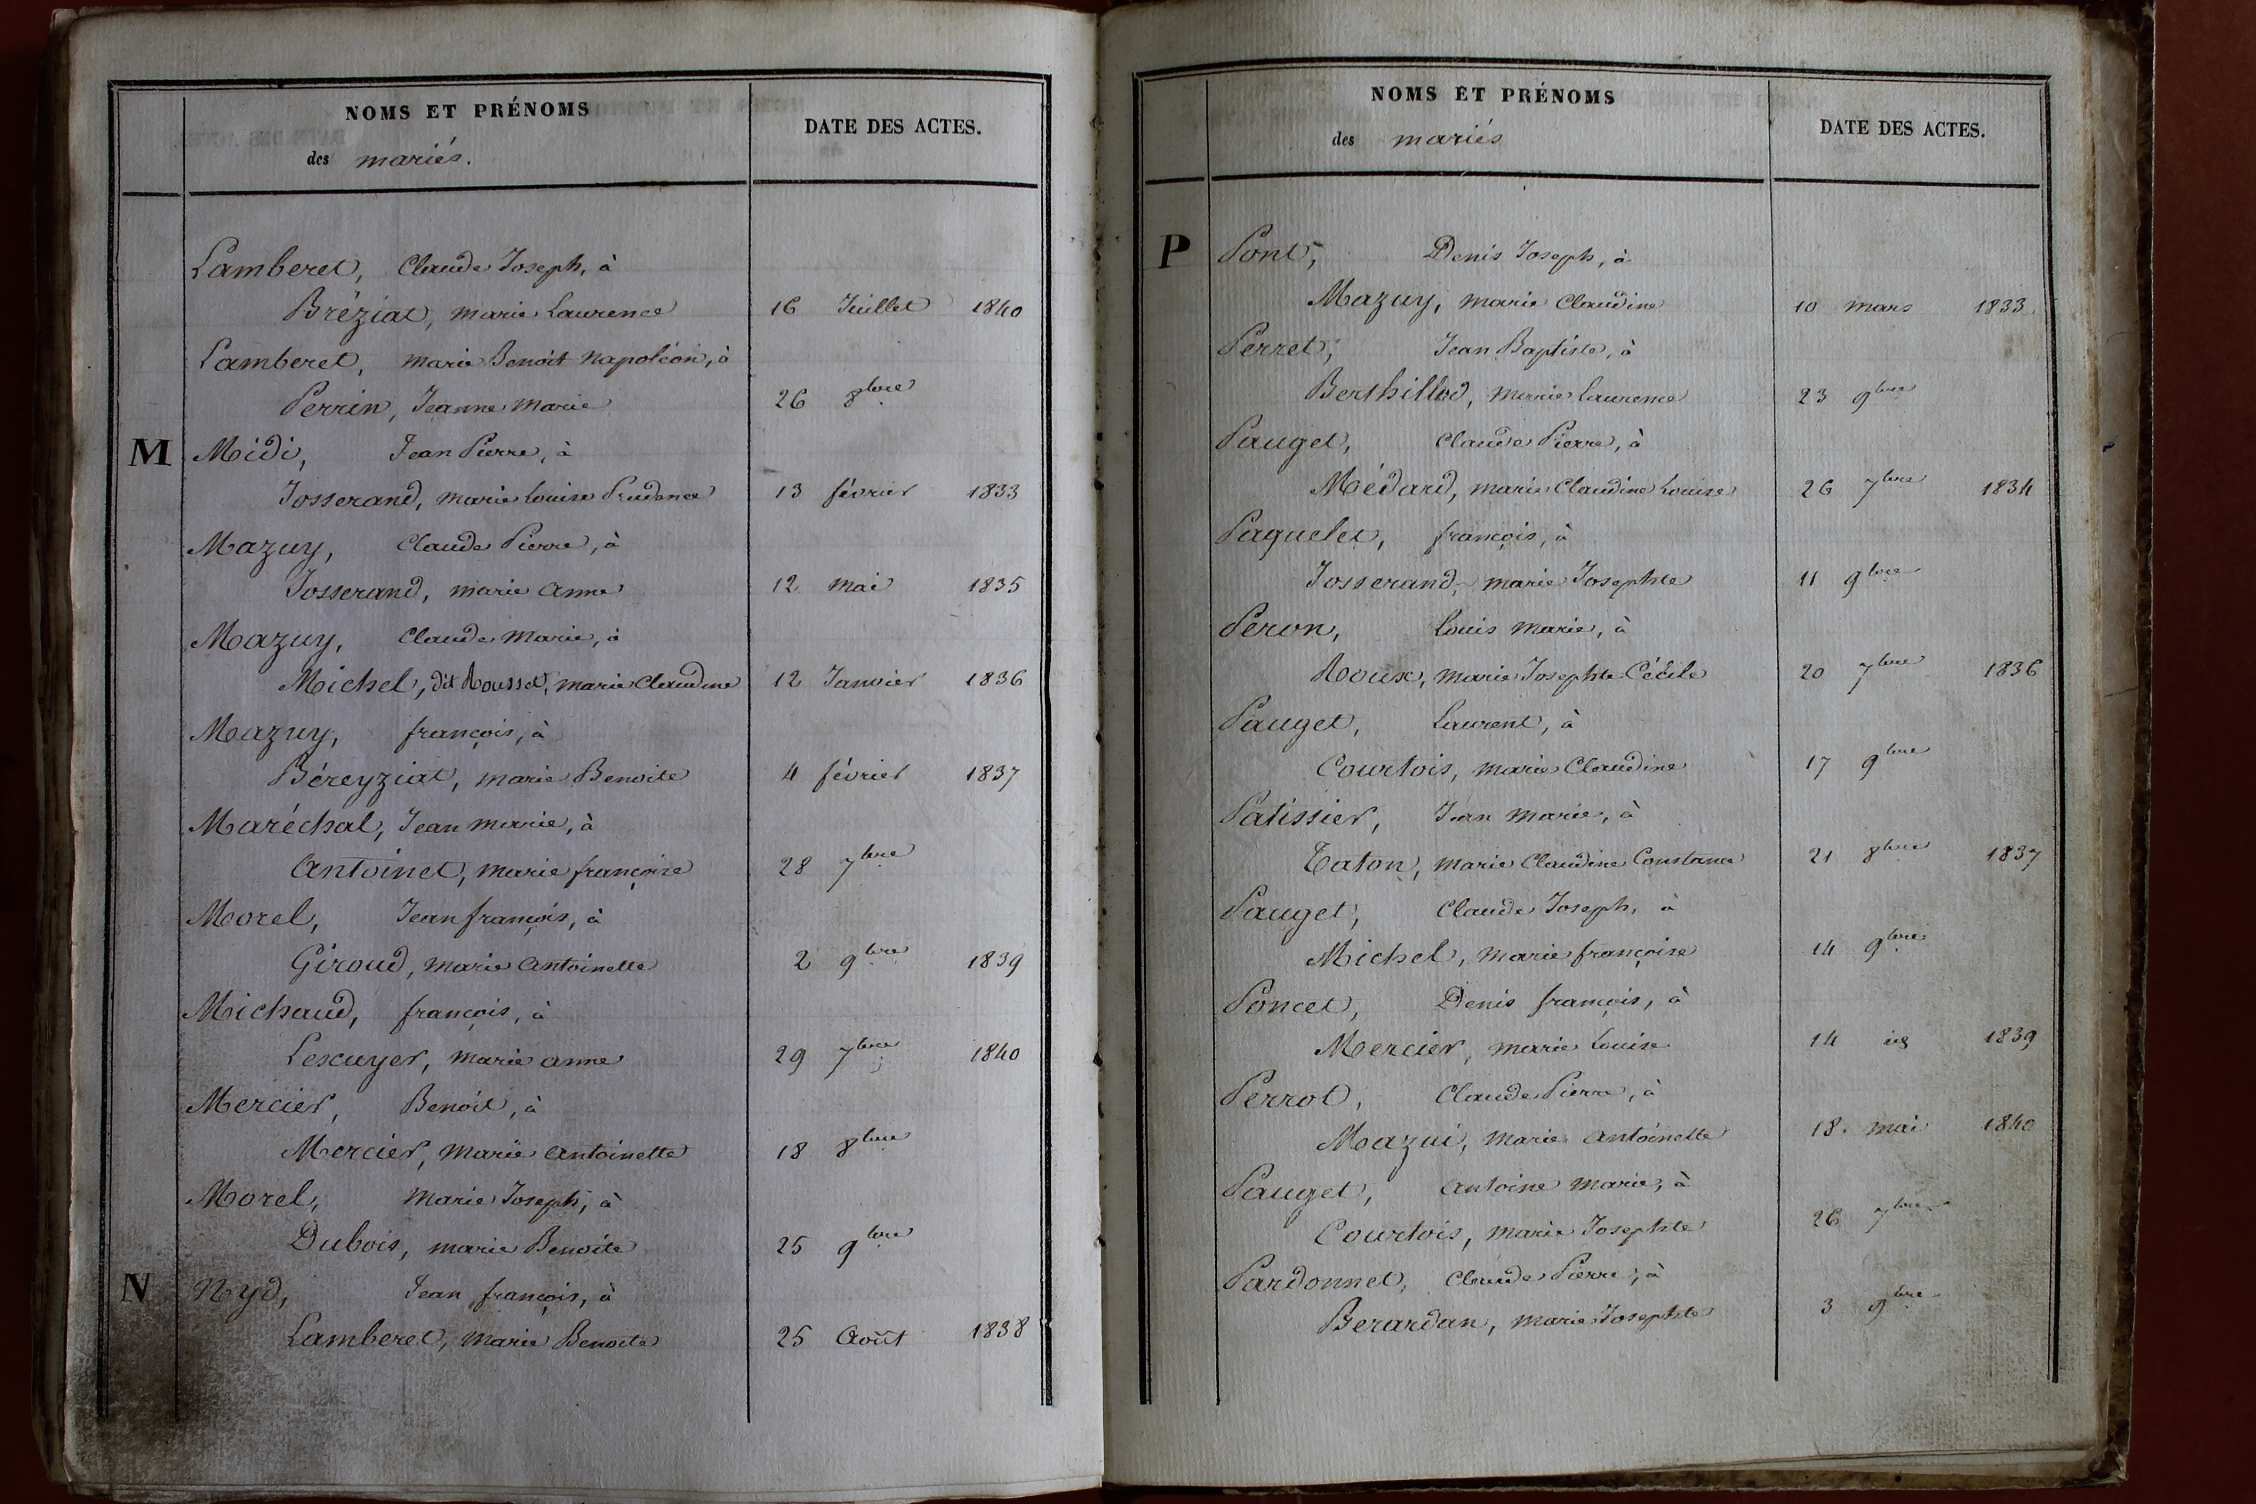 NOMS ET PRÉNOMS
des mariés.
DATE DES ACTES.
Lamberet, Claude Joseph, à
Bréziat, marie Laurence 16 Juillet 1840
Lamberet, marie Benoit Napoléon, à
Perrin, Jeanne Marie 26 8bre
M Midi, Jean Pierre, à
Josserand, marie Louise Prudence 13 février 1833
Mazuy, Claude Pierre, à
Josserand, marie Anne 12 mai 1835
Mazuy, Claude Marie, à
Michel, dit Rousset, marie Claudine 12 Janvier 1836
Mazuy, françois, à
Béreyziat, marie Benoite 4 février 1837
Maréchal, Jean marie, à
Antoinet, marie françoise 28 7bre
Morel, Jean françois, à
Giroud, marie Antoinette 2 9bre 1839
Michaud, françois, à
Lescuyer, marie anne 29 7bre 1840
Mercier, Benoit, à
Mercier, marie Antoinette 18 8bre
Morel, Marie Joseph, à
Dubois, marie Benoite 25 9bre
N Nyd, Jean françois, à
Lamberet, marie Benoite 25 Août 1838
NOMS ET PRÉNOMS
des mariés
DATE DES ACTES.
P Pont, Denis Joseph, à
Mazuy, marie Claudine 10 mars 1833
Perret, Jean Baptiste, à
Berthillod, marie Laurence 23 9bre
Pauget, Claude Pierre, à
Médard, marie Claudine Louise 26 7bre 1834
Paquelet, françois, à
Josserand, marie Josephte 11 9bre
Peron, Louis marie, à
Roux, marie Josephte Cécile 20 7bre 1836
Pauget, Laurent, à
Courtois, marie Claudine 17 9bre
Patissier, Jean Marie, à
Caton, marie Claudine Constance 21 8bre 1837
Pauget, Claude Joseph, à
Michel, marie françoise 14 9bre
Poncet, Denis françois, à
Mercier, marie Louise 14 id 1839
Perrot, Claude Pierre, à
Mazui, marie Antoinette 18 mai 1840
Pauget, Antoine marie, à
Courtois, marie Josephte 26 7bre
Pardonnet, Claude Pierre, à
Berardan, marie Josephte 3 9bre